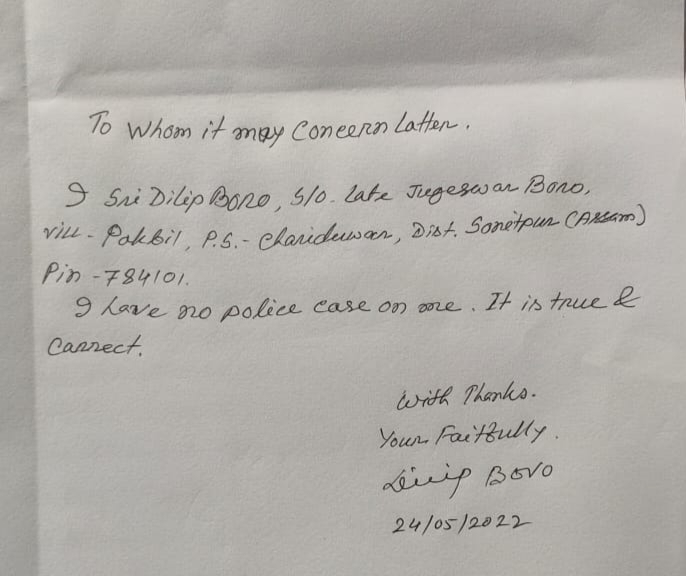 To Whom it may Concern Latter.
I Sri Dilip Boro, S/o. Late Jugeswar Boro,
vill - Pakbil, P.S. - Chariduwar, Dist. Sonitpur (Assam)
Pin - 784101.
I have no police case on me. It is true &
Carrect.
With Thanks.
Your Faitfully.
Dilip Boro
24/05/2022